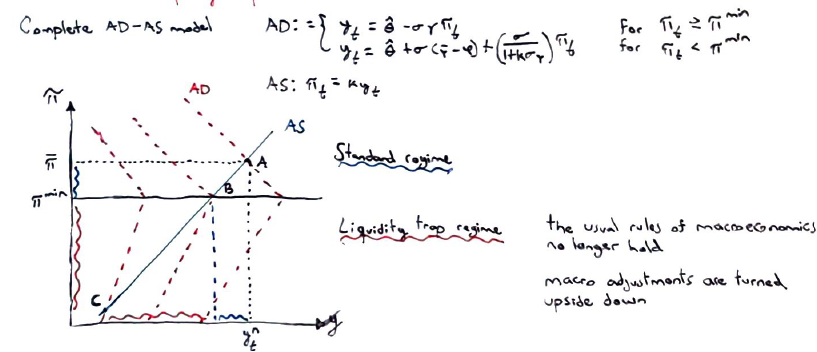 Complete AD-AS model
AD: = { y_t = θ̂ - σγπ_t for π_t ≥ π^min
y_t = θ̂ + σ(r̄ - φ) + (σ/(1+kσγ)) π_t for π_t < π^min
AS: π_t = κy_t
π
AD
AS
π̄
A
Standard regime
B
π^min
Liquidity trap regime
the usual rules of macroeconomics
no longer hold
macro adjustments are turned
upside down
C
y_t^n
y